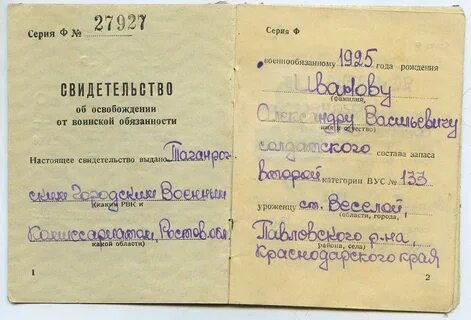 Серия Ф № 27927
СВИДЕТЕЛЬСТВО
об освобождении
от воинской обязанности
Настоящее свидетельство выдано Таганрог-
ским Городским Военным
(каким РВК и
Комиссариатом, Ростов. обл.
какой области)
1
Серия Ф
военнообязанному 1925 года рождения
Иванову
(фамилия,
Александру Васильевичу
имя и отчество)
солдатского состава запаса
второй категории ВУС № 133
уроженцу ст. Веселой,
(области, города,
Павловского р-на,
района, села)
Краснодарского края
2